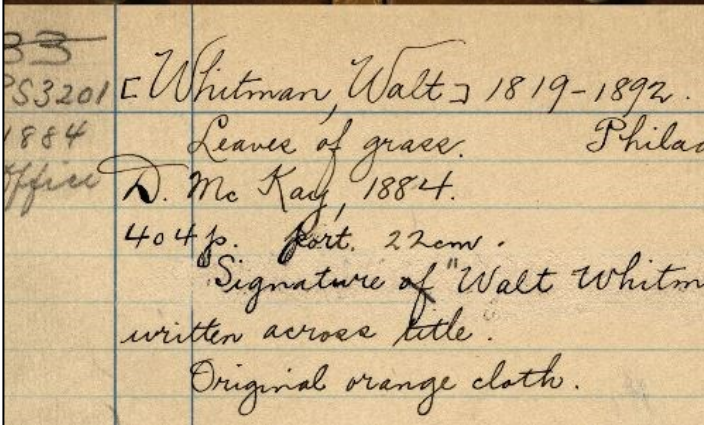 33
PS3201 [Whitman, Walt] 1819-1892.
1884 Leaves of grass. Philad
Office D. McKay, 1884.
404p. port. 22cm.
Signature of "Walt Whitm
written across title.
Original orange cloth.